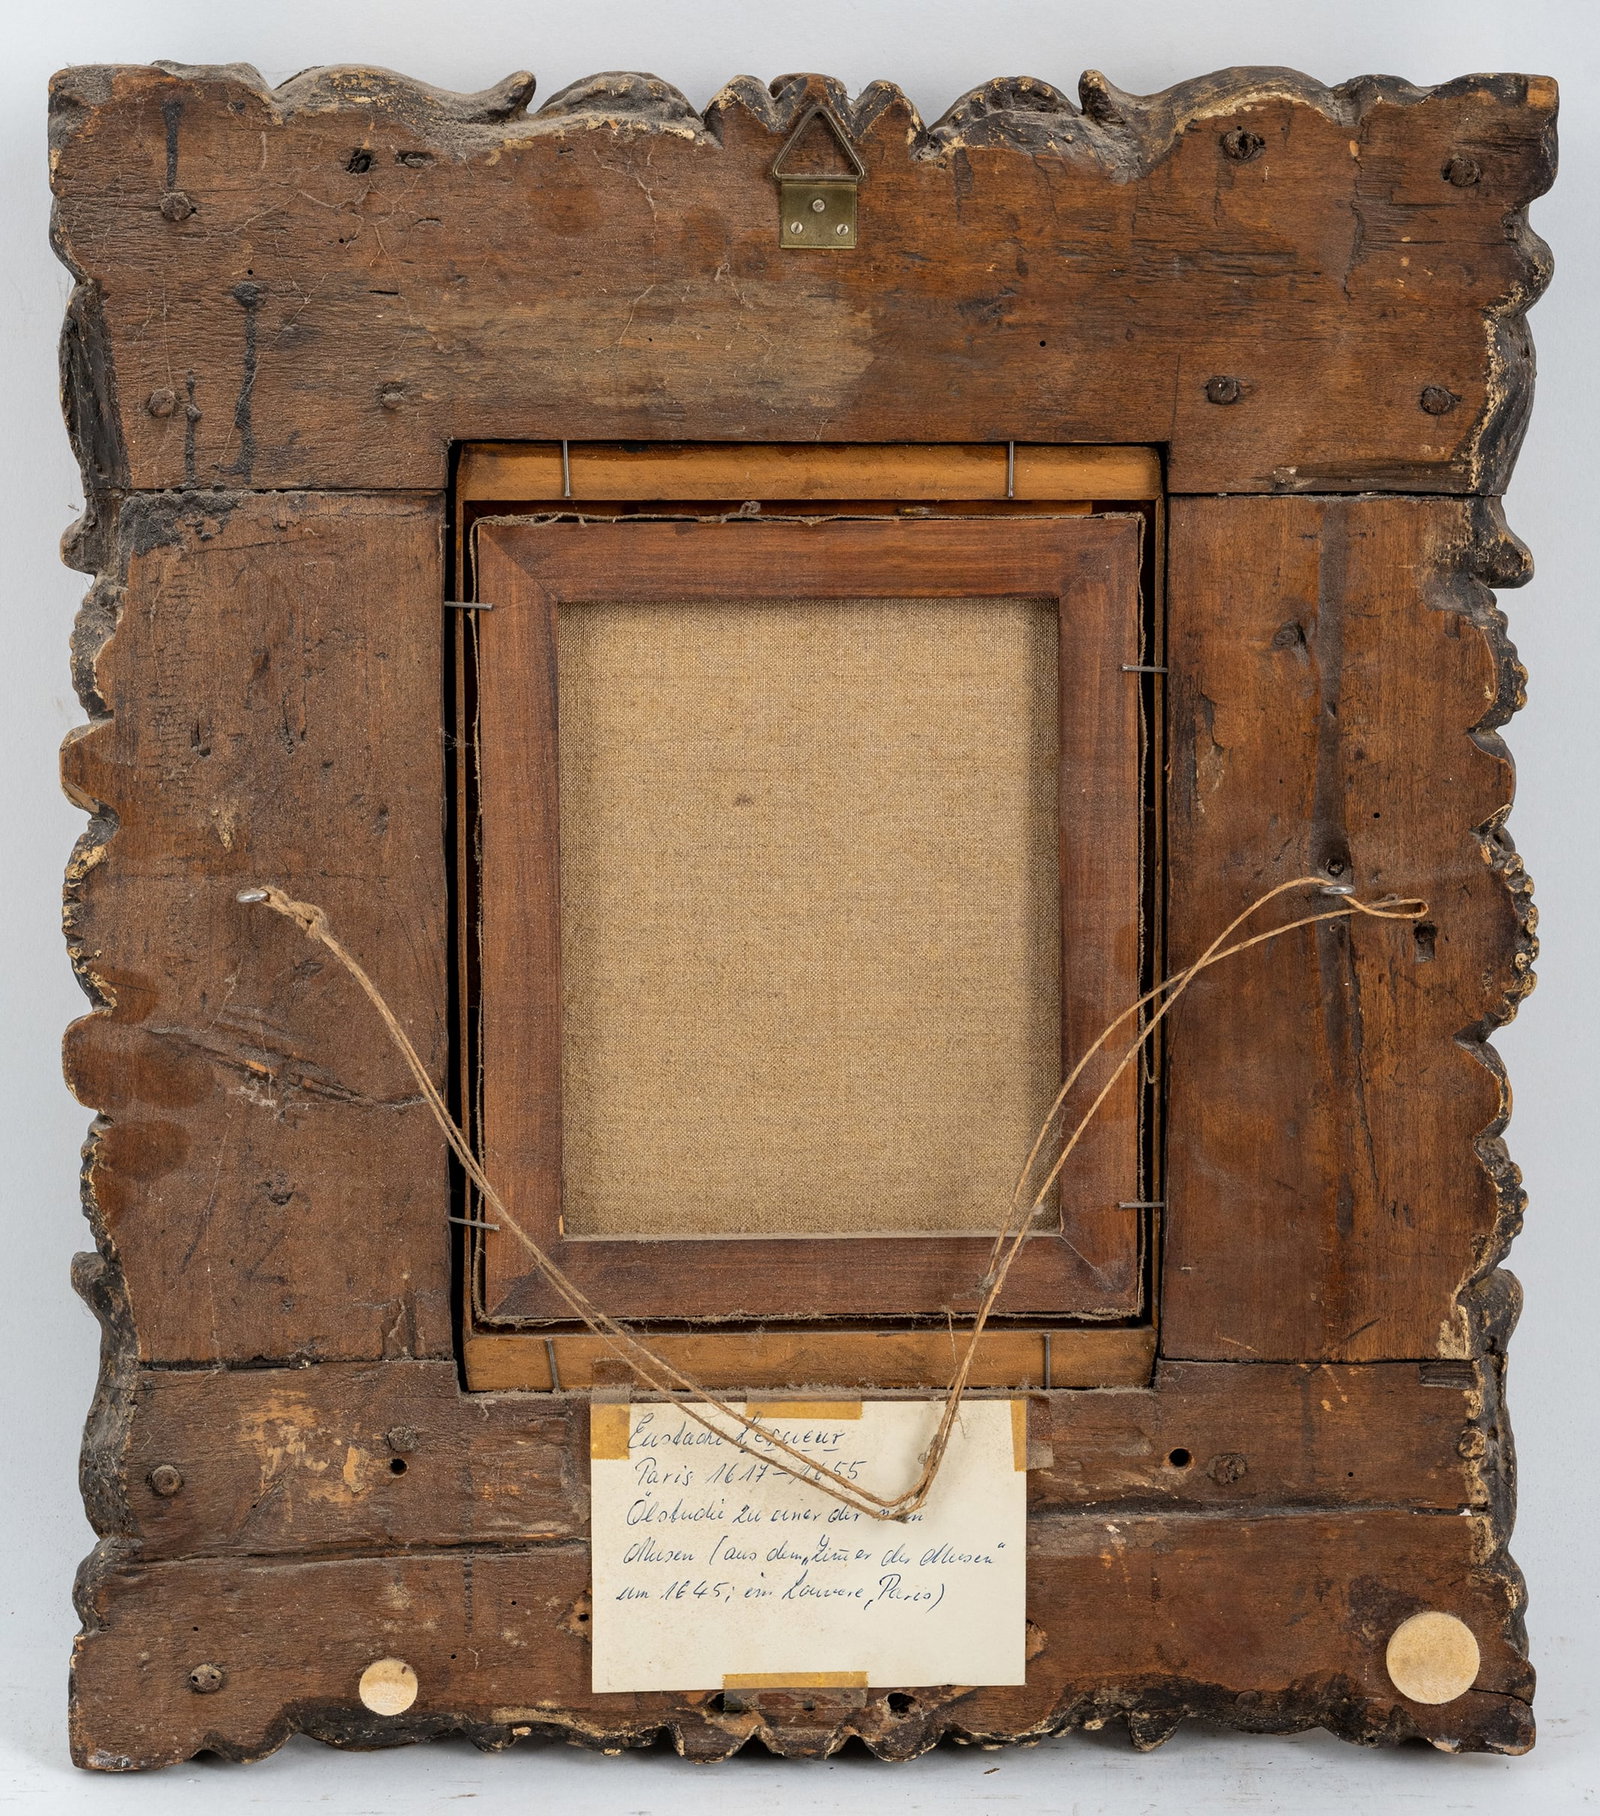 Eustache Lesueur
Paris 1617-1655
Ölstudie zu einer der
Musen (aus dem „Zim̄er der Musen“
um 1645; im Louvre, Paris)